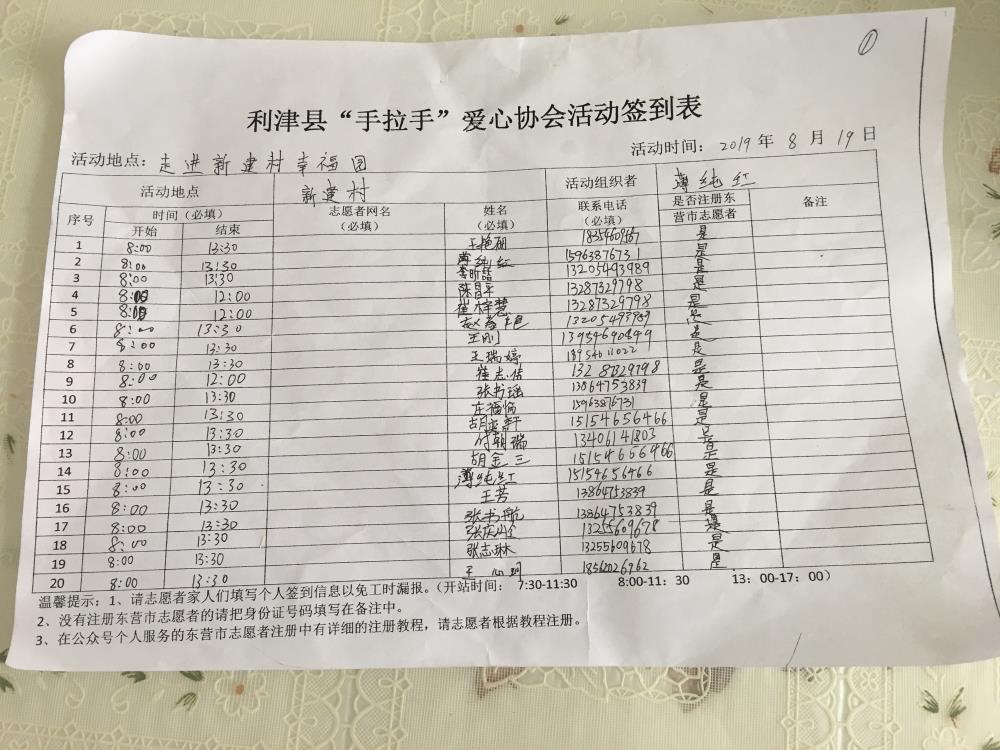 ①
利津县“手拉手”爱心协会活动签到表
活动地点：走进新建村幸福园 活动时间：2019年8月19日
活动地点 新建村 活动组织者 薄纯红
序号 时间（必填） 志愿者网名（必填） 姓名（必填） 联系电话（必填） 是否注册东营市志愿者 备注
开始 结束
1 8:00 13:30 是
2 8:00 13:30 薄纯红 15963876731 是
3 8:00 13:30 13205493989 是
4 8:00 12:00 陈昌平 13287329798 是
5 8:00 12:00 13287329798 是
6 8:00 13:30 13205493989 是
7 8:00 13:30 王刚 是
8 8:00 13:30 王瑞婷 是
9 8:00 12:00 崔志佶 13287329798 是
10 8:00 13:30 张书瑶 13864753839 是
11 8:00 13:30 庄福临 15963876731 是
12 8:00 13:30 15154656466 是
13 8:00 13:30 付朝瑞 13406141803 是
14 8:00 13:30 胡金三 15154656466 是
15 8:00 13:30 薄纯红 15154656466 是
16 8:00 13:30 王芳 13864753839 是
17 8:00 13:30 张书航 13864753839 是
18 8:00 13:30 13255609678 是
19 8:00 13:30 张志琳 13255609678 是
20 8:00 13:30 18562026962 是
温馨提示：1、请志愿者家人们填写个人签到信息以免工时漏报。（开站时间： 7:30-11:30 8:00-11：30 13：00-17：00）
2、没有注册东营市志愿者的请把身份证号码填写在备注中。
3、在公众号个人服务的东营市志愿者注册中有详细的注册教程，请志愿者根据教程注册。